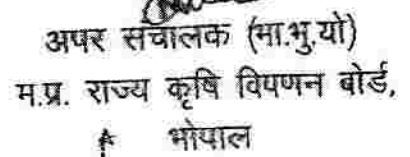 अपर संचालक (मा.भु.यो)
म.प्र. राज्य कृषि विपणन बोर्ड,
भोपाल